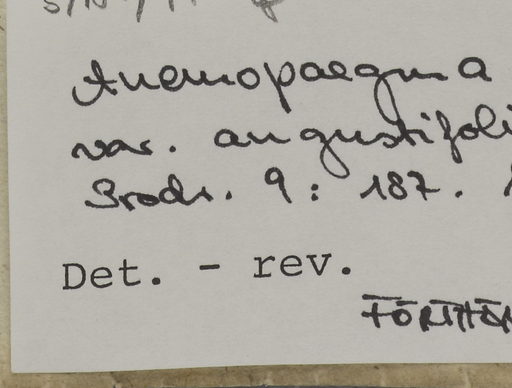 Anemopaegma
var. angustifoli
Prodr. 9: 187.
Det. - rev.